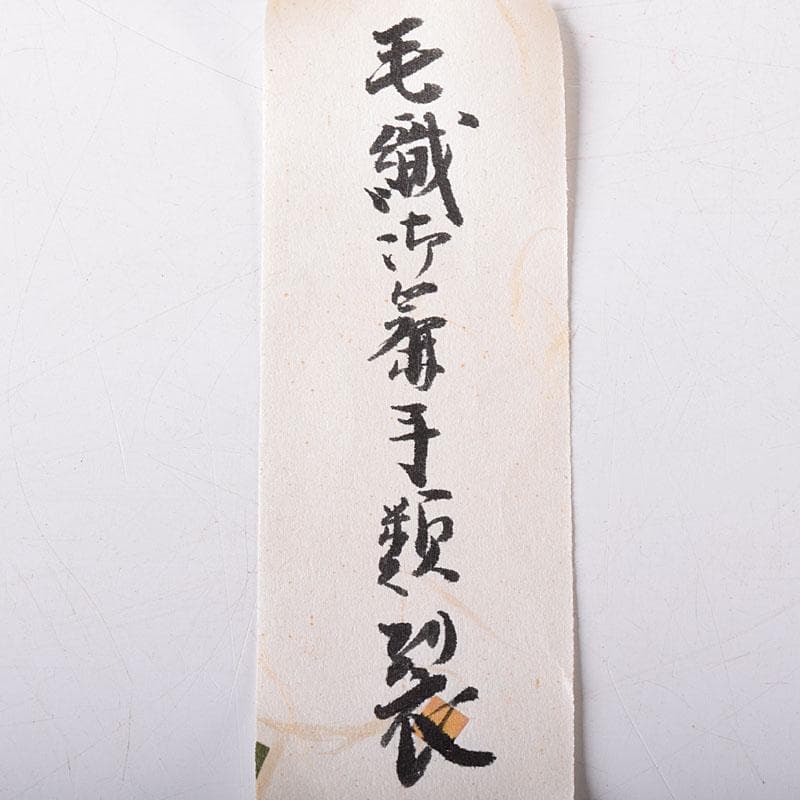 毛織御簾手類裂